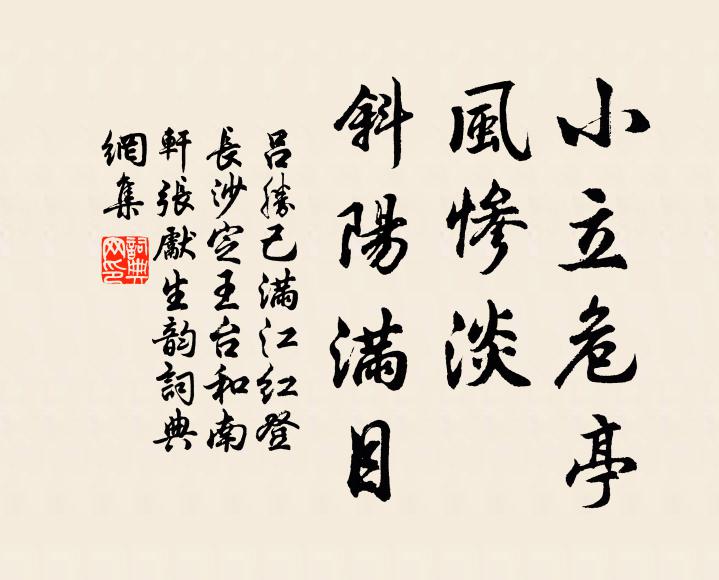 小立危亭
風惨淡
斜陽滿目
呂勝己滿江红登
長沙定王台和南
軒張獻生韵詞典
網集
詞典
网印